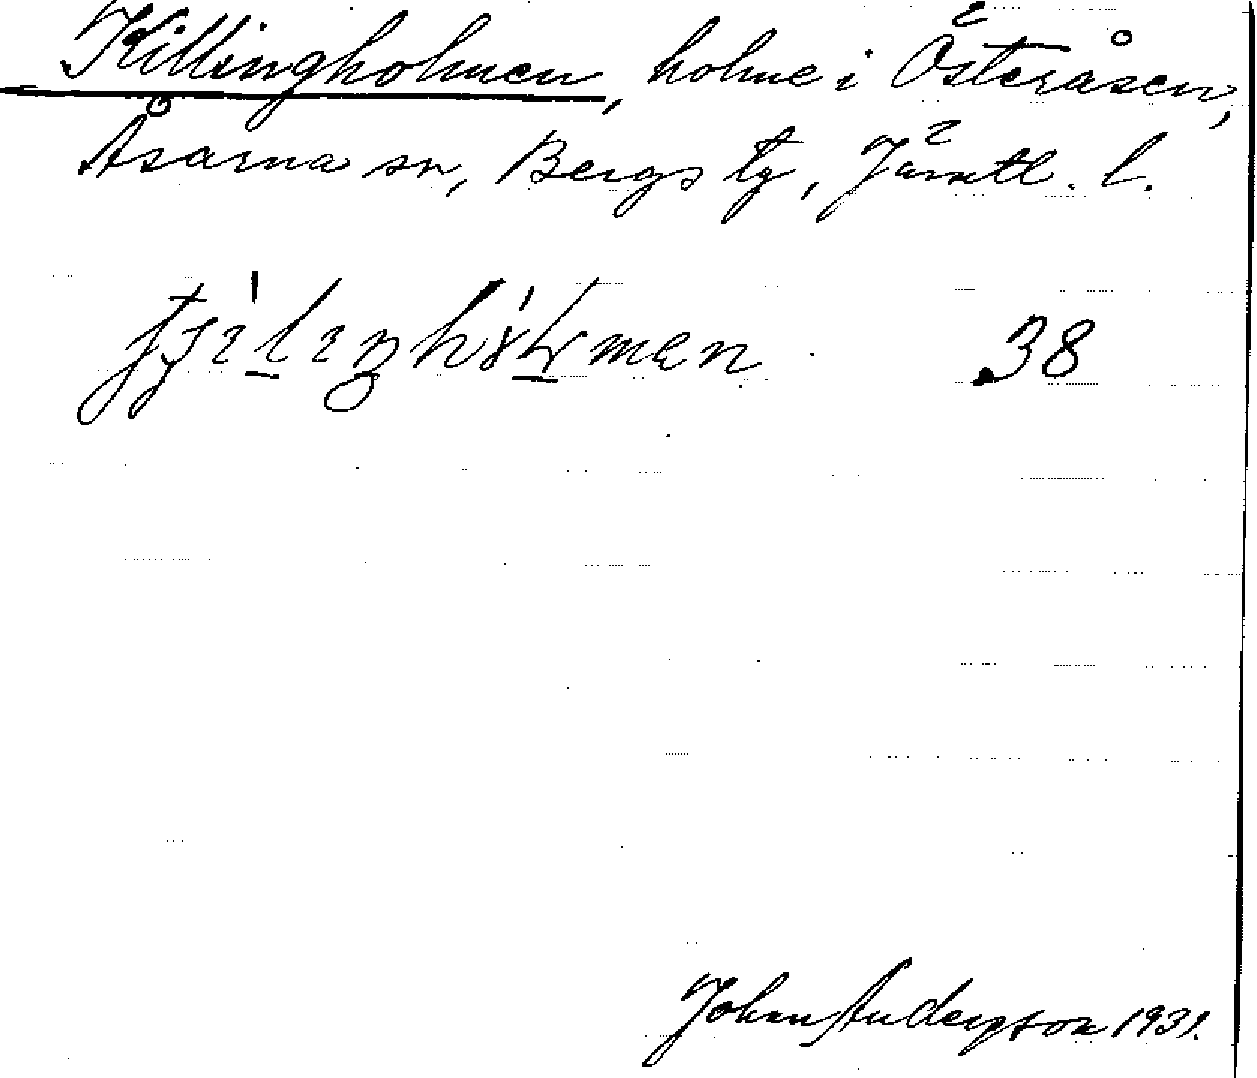 Killingholmen, holme i Österåsen,
Åsarna sn, Bergs tg, Jämtl. l.
38
John Anderson 1931.